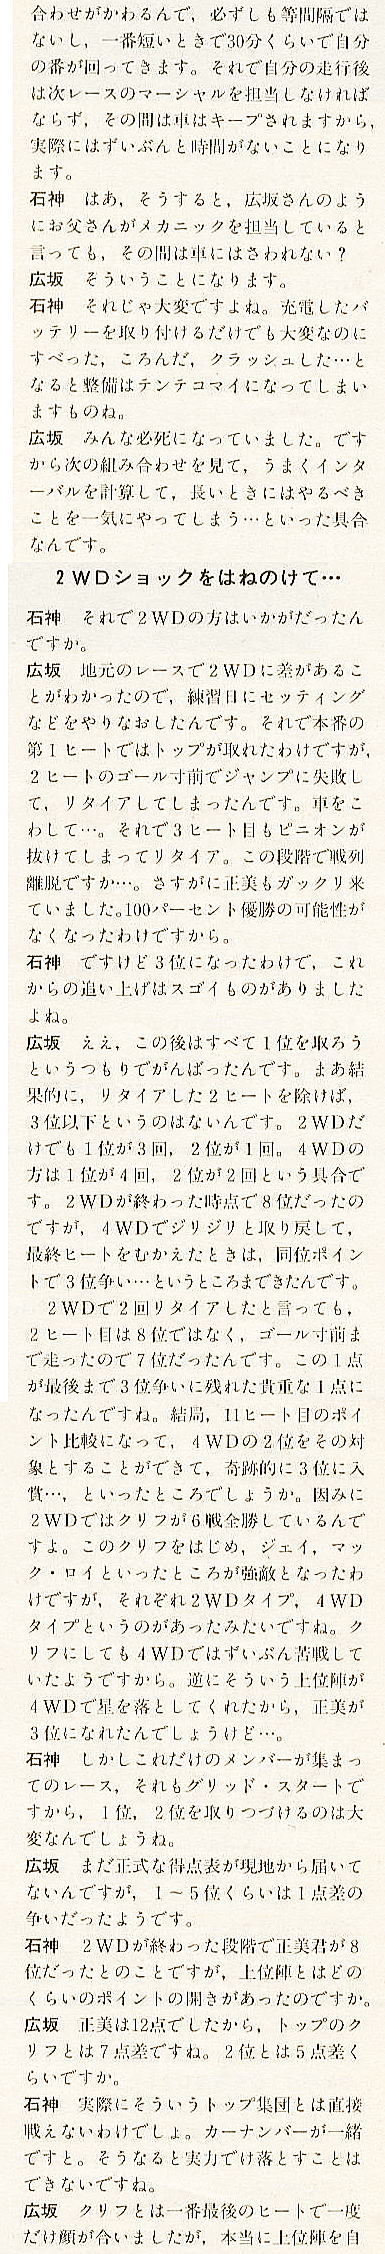 合わせがかわるんで，必ずしも等間隔では
ないし，一番短いときで30分くらいで自分
の番が回ってきます。それで自分の走行後
は次レースのマーシャルを担当しなければ
ならず，その間は車はキープされますから，
実際にはずいぶんと時間がないことになり
ます。
石神　はあ，そうすると，広坂さんのよう
にお父さんがメカニックを担当していると
言っても，その間は車にはさわれない？
広坂　そういうことになります。
石神　それじゃ大変ですよね。充電したバ
ッテリーを取り付けるだけでも大変なのに
すべった，ころんだ，クラッシュした…と
なると整備はテンテコマイになってしまい
ますものね。
広坂　みんな必死になっていました。です
から次の組み合わせを見て，うまくインタ
ーバルを計算して，長いときにはやるべき
ことを一気にやってしまう…といった具合
なんです。
2WDショックをはねのけて…
石神　それで2WDの方はいかがだったん
ですか。
広坂　地元のレースで2WDに差があるこ
とがわかったので，練習日にセッティング
などをやりなおしたんです。それで本番の
第1ヒートではトップが取れたわけですが，
2ヒートのゴール寸前でジャンプに失敗し
て，リタイアしてしまったんです。車をこ
わして…。それで3ヒート目もピニオンが
抜けてしまってリタイア。この段階で戦列
離脱ですか…。さすがに正美もガックリ来
ていました。100パーセント優勝の可能性が
なくなったわけですから。
石神　ですけど3位になったわけで，これ
からの追い上げはスゴイものがありました
よね。
広坂　ええ，この後はすべて1位を取ろう
というつもりでがんばったんです。まあ結
果的に，リタイアした2ヒートを除けば，
3位以下というのはないんです。2WDだ
けでも1位が3回，2位が1回。4WDの
方は1位が4回，2位が2回という具合で
す。2WDが終わった時点で8位だったの
ですが，4WDでジリジリと取り戻して，
最終ヒートをむかえたときは，同位ポイン
トで3位争い…というところまできたんです。
　2WDで2回リタイアしたと言っても，
2ヒート目は8位ではなく，ゴール寸前ま
で走ったので7位だったんです。この1点
が最後まで3位争いに残れた貴重な1点に
なったんですね。結局，11ヒート目のポイ
ント比較になって，4WDの2位をその対
象とすることができて，奇跡的に3位に入
賞…，といったところでしょうか。因みに
2WDではクリフが6戦全勝しているんで
すよ。このクリフをはじめ，ジェイ，マッ
ク・ロイといったところが強敵となったわ
けですが，それぞれ2WDタイプ，4WD
タイプというのがあったみたいですね。ク
リフにしても4WDではずいぶん苦戦して
いたようですから。逆にそういう上位陣が
4WDで星を落としてくれたから，正美が
3位になれたんでしょうけど…。
石神　しかしこれだけのメンバーが集まっ
てのレース，それもグリッド・スタートで
すから，1位，2位を取りつづけるのは大
変なんでしょうね。
広坂　まだ正式な得点表が現地から届いて
ないんですが，1～5位くらいは1点差の
争いだったようです。
石神　2WDが終わった段階で正美君が8
位だったとのことですが，上位陣とはどの
くらいのポイントの開きがあったのですか。
広坂　正美は12点でしたから，トップのク
リフとは7点差ですね。2位とは5点差く
らいですか。
石神　実際にそういうトップ集団とは直接
戦えないわけでしょ。カーナンバーが一緒
ですと。そうなると実力でけ落とすことは
できないですね。
広坂　クリフとは一番最後のヒートで一度
だけ顔が合いましたが，本当に上位陣を自